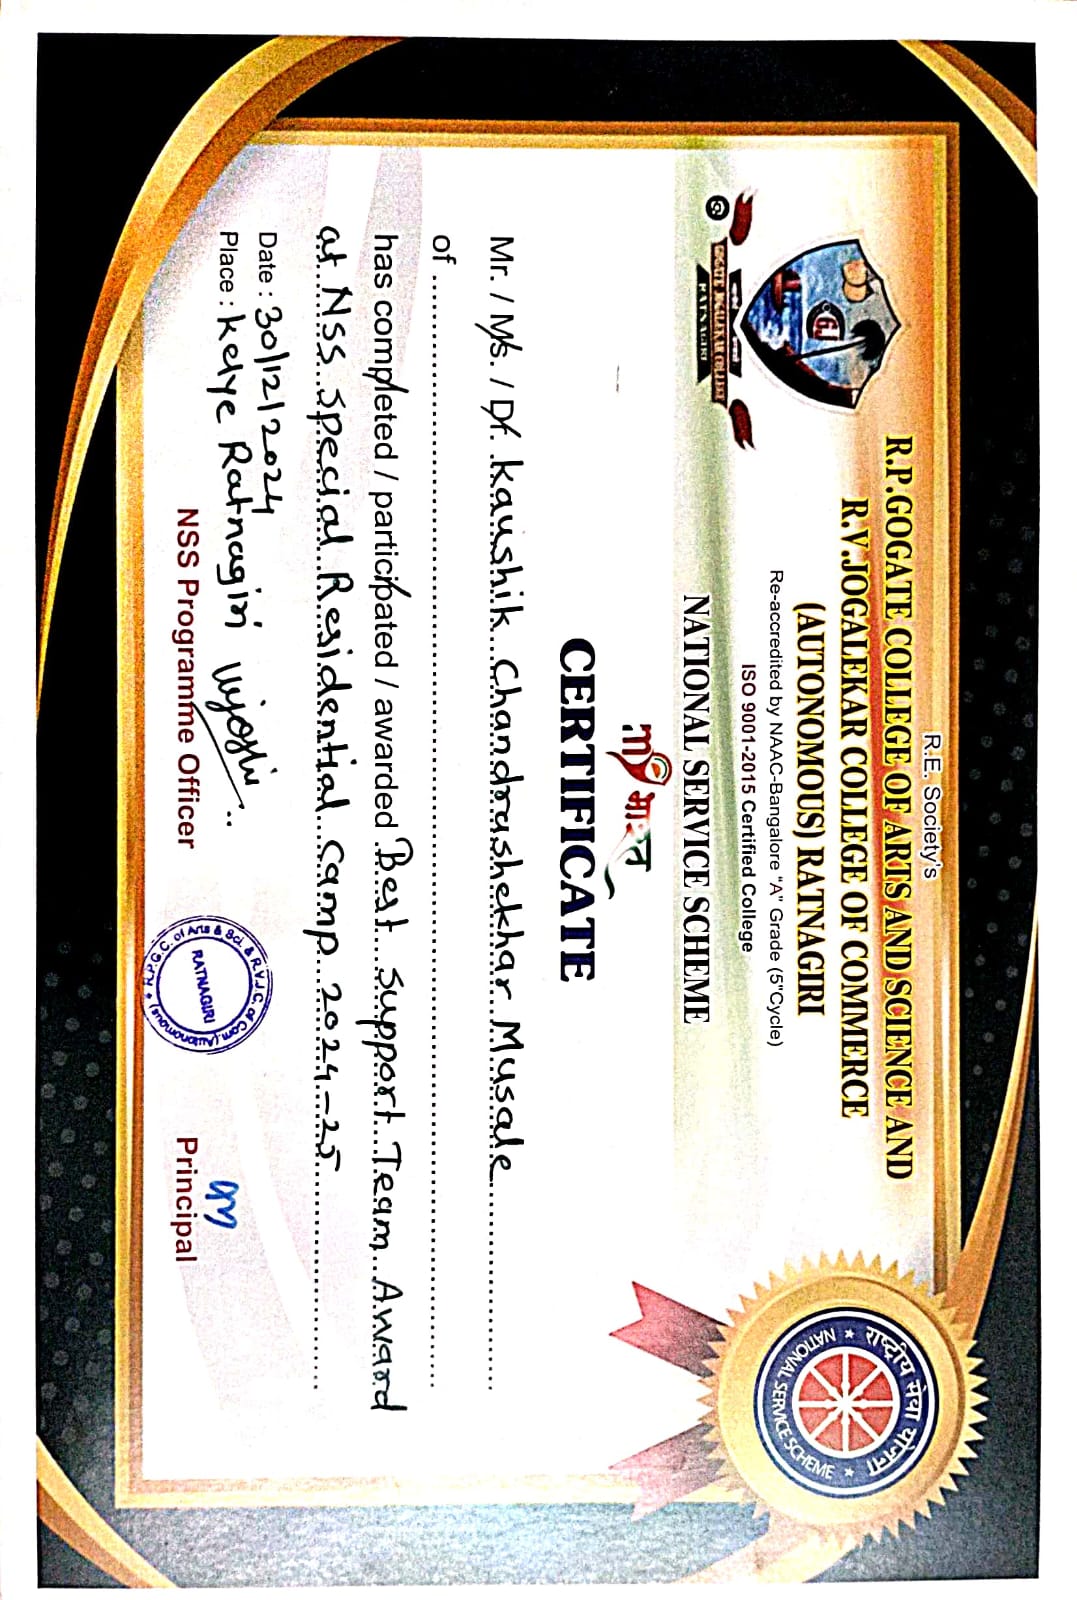 R.E. Society's
R.P.GOGATE COLLEGE OF ARTS AND SCIENCE AND
R.V.JOGALEKAR COLLEGE OF COMMERCE
(AUTONOMOUS) RATNAGIRI
Re-accredited by NAAC-Bangalore "A" Grade (5"Cycle)
ISO 9001-2015 Certified College
GJ
GOGATE JOGALEKAR COLLEGE
RATNAGIRI
राष्ट्रीय सेवा योजना
NATIONAL SERVICE SCHEME
NATIONAL SERVICE SCHEME
my भारत
CERTIFICATE
Mr. / Ms. / Dr. Kaushik Chandrashekhar Musale
of
has completed / participated / awarded Best Support Team Award
at NSS Special Residential Camp 2024-25
Date : 30/12/2024
Place : Kelye Ratnagiri
NSS Programme Officer
R.P.G.C. of Arts & Sci. & R.V.J.C. of Com. (Autonomous)
RATNAGIRI
Principal